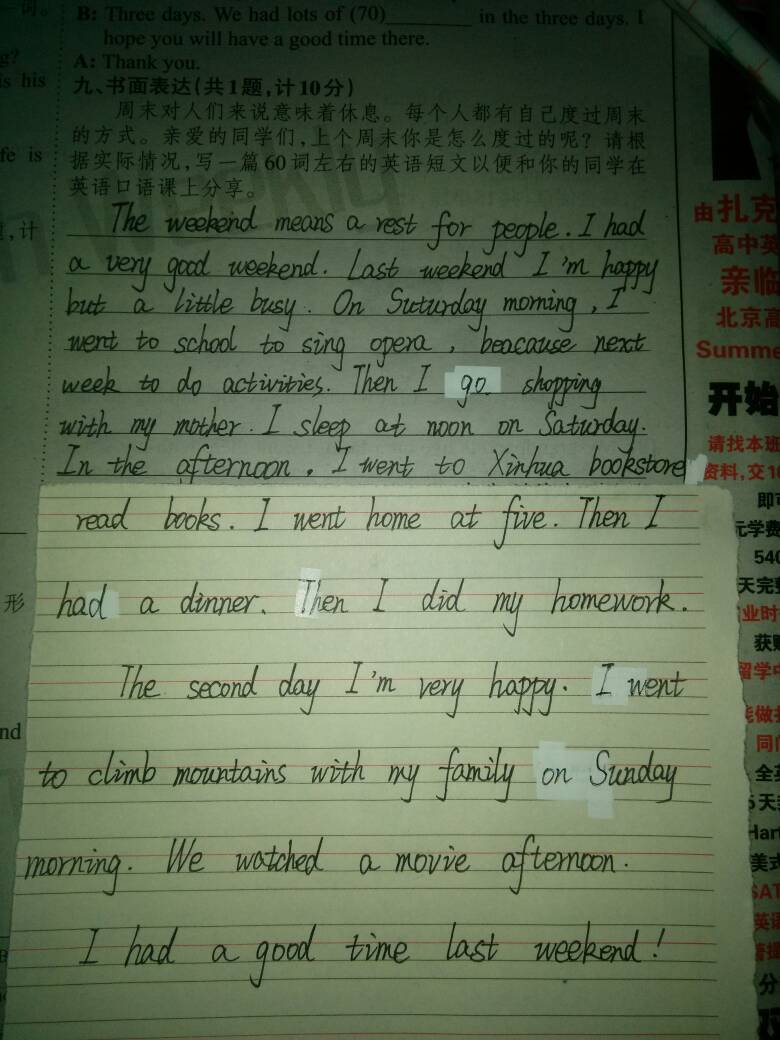 词。
B: Three days. We had lots of (70)________ in the three days. I
hope you will have a good time there.
A: Thank you.
九、书面表达(共1题,计10分)
周末对人们来说意味着休息。每个人都有自己度过周末
的方式。亲爱的同学们,上个周末你是怎么度过的呢? 请根
据实际情况,写一篇60词左右的英语短文以便和你的同学在
英语口语课上分享。
The weekend means a rest for people. I had
a very good weekend. Last weekend I'm happy
but a little busy. On Suturday morning, I
went to school to sing opera, beacause next
week to do activities. Then I go shopping
with my mother. I sleep at noon on Saturday.
In the afternoon, I went to Xinhua bookstore
read books. I went home at five. Then I
had a dinner. Then I did my homework.
The second day I'm very happy. I went
to climb mountains with my family on Sunday
morning. We watched a movie afternoon.
I had a good time last weekend!
g?
is his
fe is
,计
形
nd
由扎克
高中英
亲临
北京高
Summe
开始
请找本班
资料,交1
即可
元学费
540
天完
业时
获
留学
能做
同
全
5天
Har
美式
SAT
英语
分